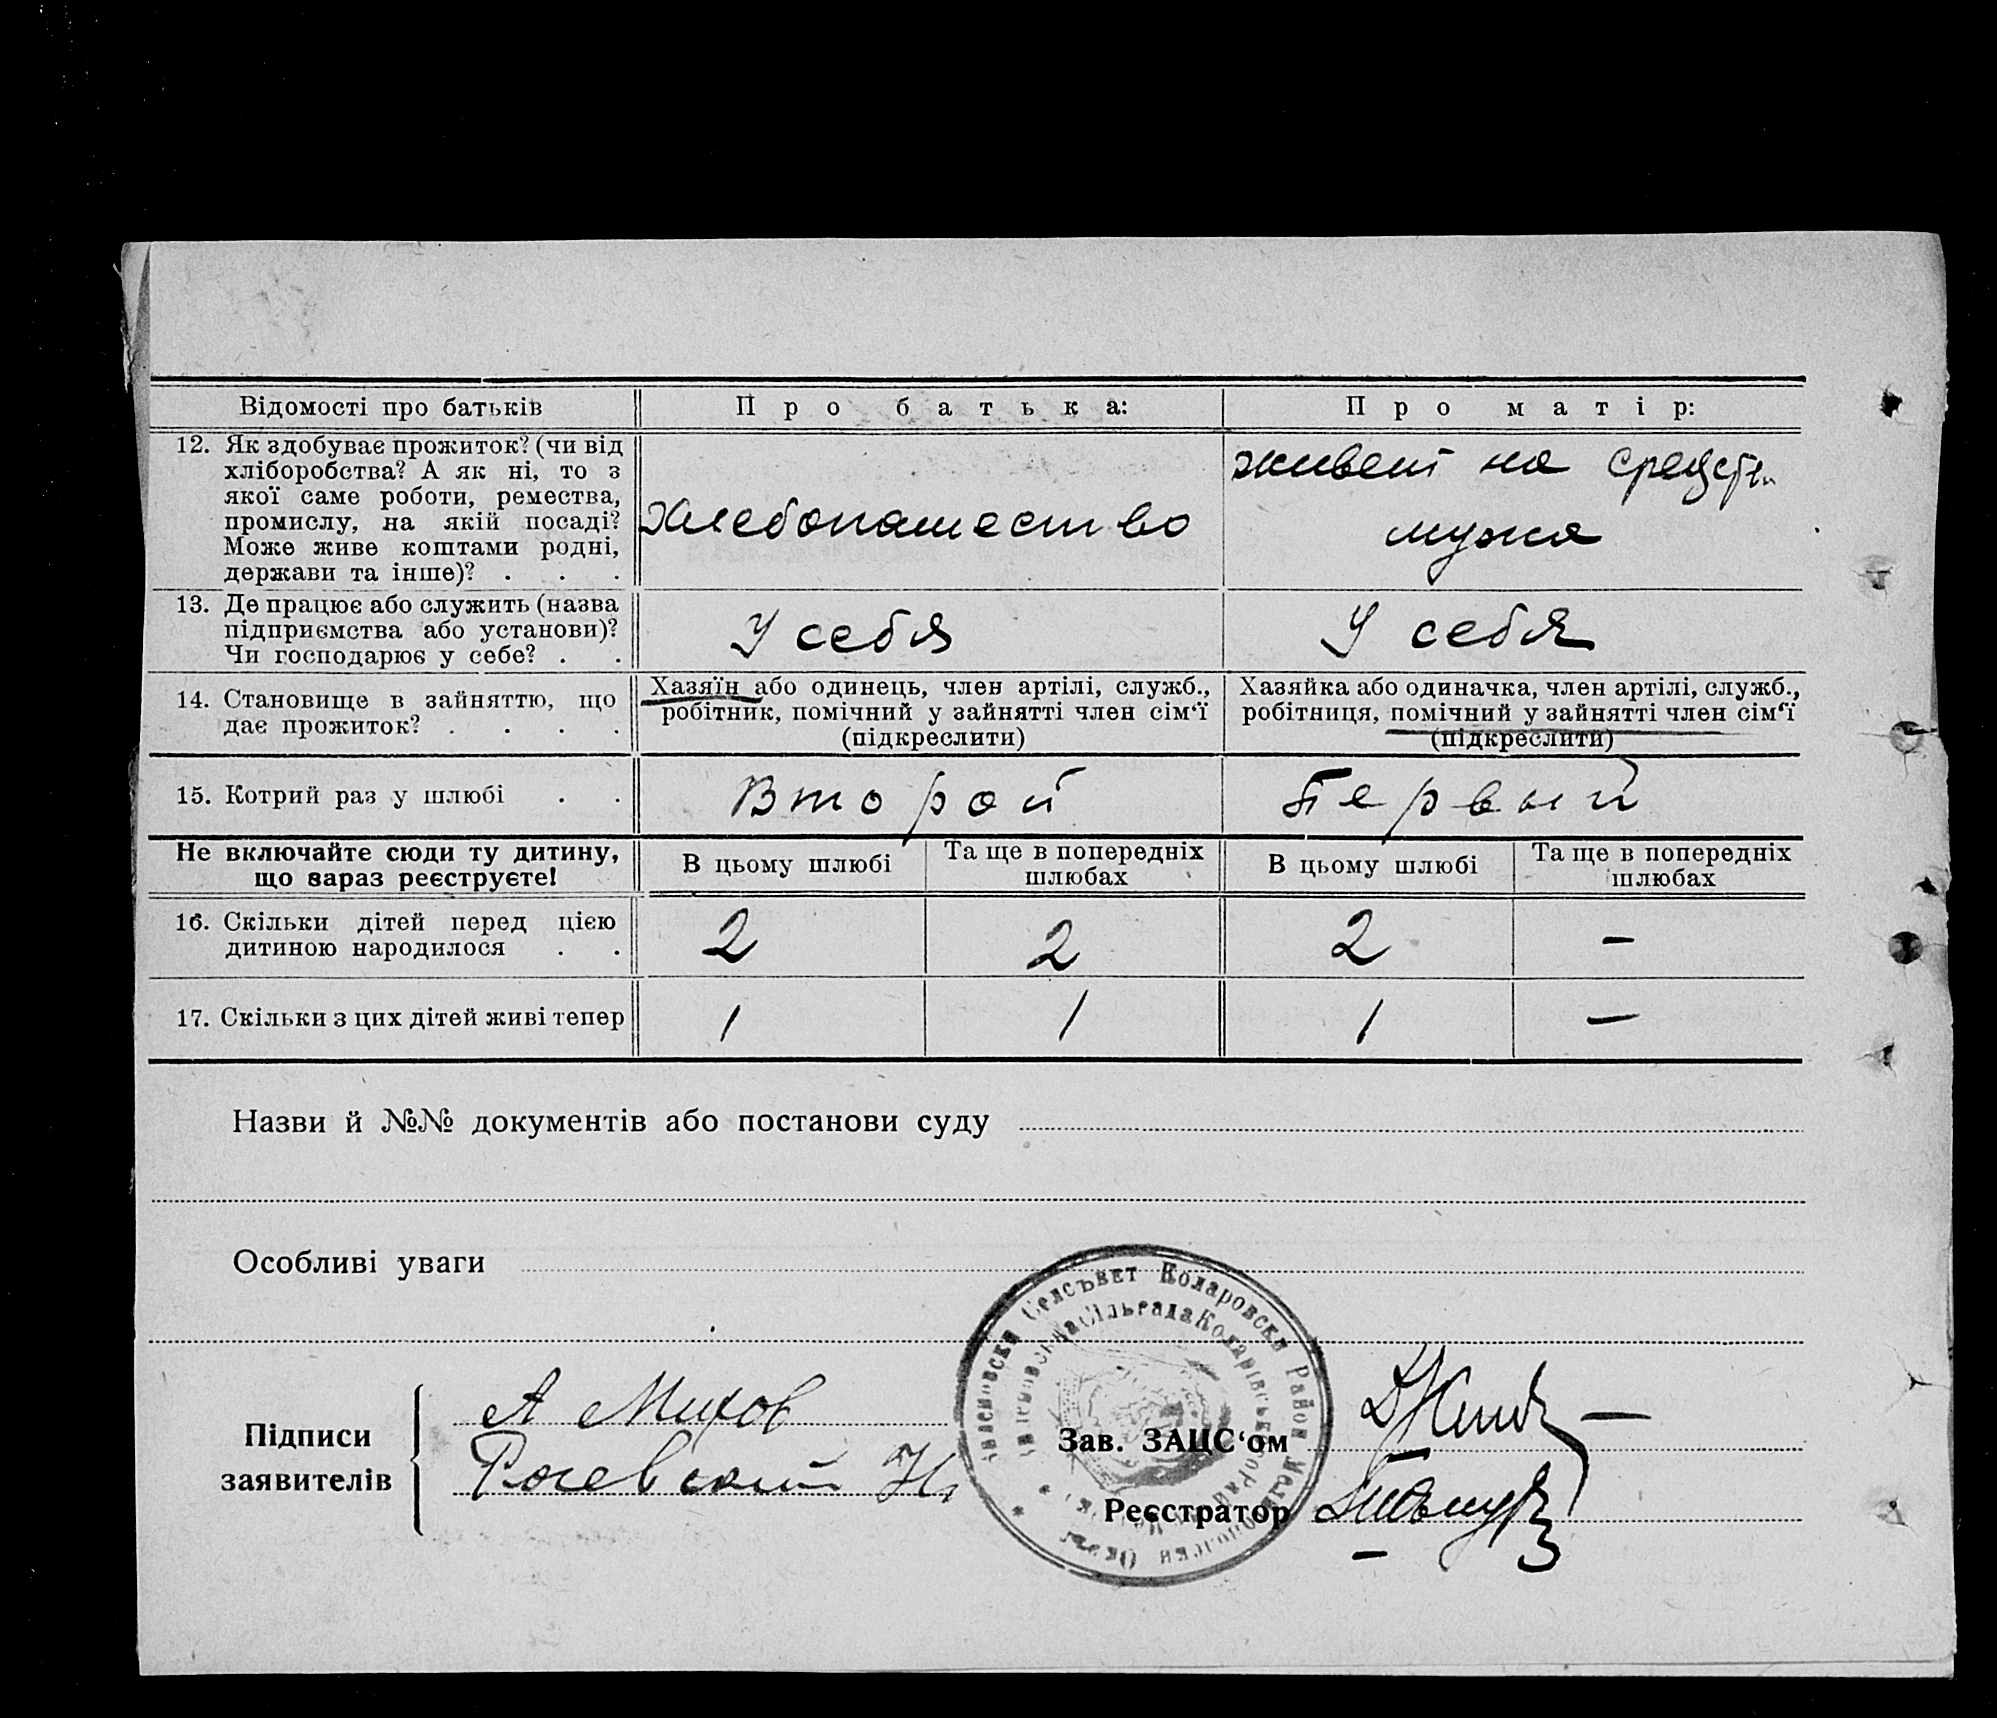 Відомості про батьків
Про батька:
Про матір:
12. Як здобуває прожиток? (чи від
хліборобства? А як ні, то з
якої саме роботи, ремества,
промислу, на якій посаді?
Може живе коштами родні,
держави та інше)? . . .
Хлебопашество
живет на средств
мужа
13. Де працює або служить (назва
підприємства або установи)?
Чи господарює у себе? . .
У себя
У себя
14. Становище в зайняттю, що
дає прожиток? . . . .
Хазяїн або одинець, член артілі, служб.,
робітник, помічний у зайнятті член сім‘ї
(підкреслити)
Хазяйка або одиначка, член артілі, служб.,
робітниця, помічний у зайнятті член сім‘ї
(підкреслити)
15. Котрий раз у шлюбі . .
Второй
Первый
Не включайте сюди ту дитину,
що зараз реєструєте!
В цьому шлюбі
Та ще в попередніх
шлюбах
В цьому шлюбі
Та ще в попередніх
шлюбах
16. Скільки дітей перед цією
дитиною народилося . .
2
2
2
—
17. Скільки з цих дітей живі тепер
1
1
1
—
Назви й №№ документів або постанови суду
Особливі уваги
Селсъвет Коларовски Район
Сільрада Коларівського
Підписи
заявителів
А Михов
Зав. ЗАЦС‘ом
Реєстратор